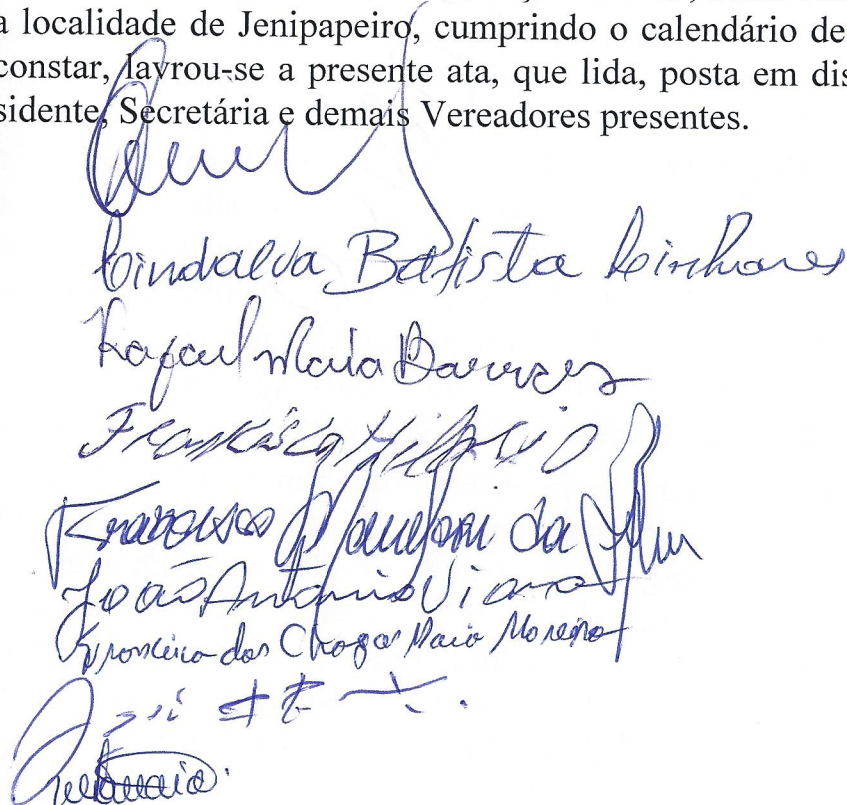 a localidade de Jenipapeiro, cumprindo o calendário de
constar, lavrou-se a presente ata, que lida, posta em dis
sidente, Secretária e demais Vereadores presentes.
Lindalva Batista Linhares
Rafael Maia
Francisca Hilário
Francisco da
João Antônio Viana
Francisco das Chagas Maia Moreira
José